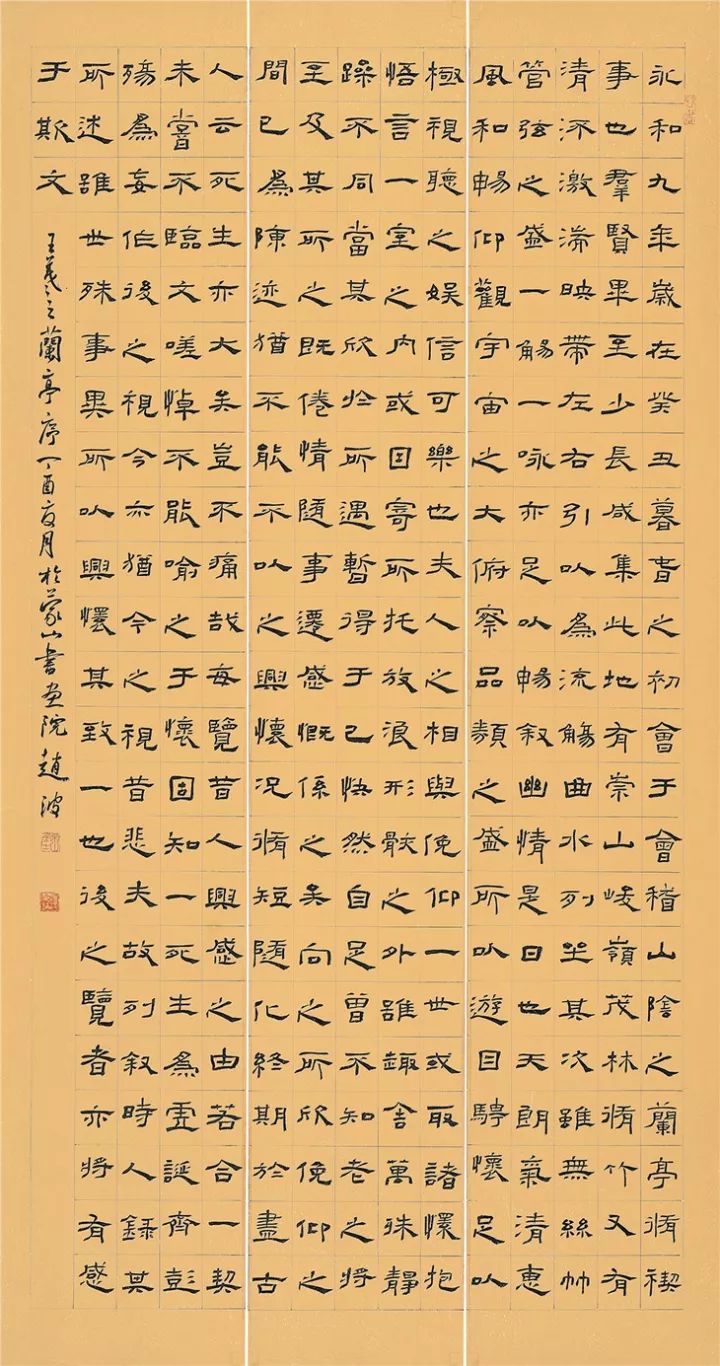 永和九年歲在癸丑暮春之初會于會稽山陰之蘭亭脩禊
事也羣賢畢至少長咸集此地有崇山峻嶺茂林脩竹又有
清流激湍映帶左右引以為流觴曲水列坐其次雖無絲竹
管弦之盛一觴一咏亦足以暢叙幽情是日也天朗氣清惠
風和暢仰觀宇宙之大俯察品類之盛所以遊目騁懷足以
極視聽之娛信可樂也夫人之相與俛仰一世或取諸懷抱
悟言一室之內或因寄所托放浪形骸之外雖趣舍萬殊靜
躁不同當其欣於所遇暫得于己快然自足曾不知老之將
至及其所之既倦情隨事遷感慨係之矣向之所欣俛仰之
間已為陳迹猶不能不以之興懷況脩短隨化終期於盡古
人云死生亦大矣豈不痛哉每覽昔人興感之由若合一契
未嘗不臨文嗟悼不能喻之于懷固知一死生為虛誕齊彭
殤為妄作後之視今亦猶今之視昔悲夫故列叙時人録其
所述雖世殊事異所以興懷其致一也後之覽者亦將有感
于斯文
王羲之蘭亭序丁酉夏月於蒙山書画院趙波